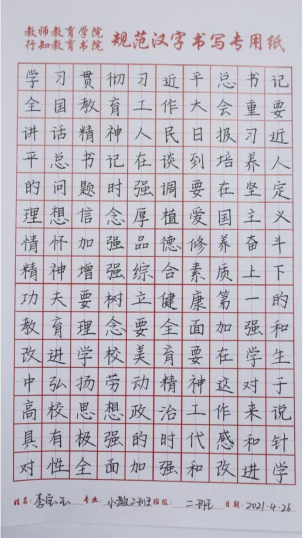 教师教育学院
行知教育书院
规范汉字书写专用纸
学习贯彻习近平总书记
全国教育工作大会重要
讲话精神人民日报习近
平总书记在谈到培养人
的问题时强调要在坚定
理想信念厚植爱国主义
情怀加强品德修养奋斗
精神增强综合素质上下
功夫要树立健康第一的
教育理念要全面加强和
改进学校美育要在学生
中弘扬劳动精神这对于
高校思想政治工作来说
具有极强的时代感和针
对性全面加强和改进学
姓名：李 专业：小教 班级：二班 日期：2021.4.26